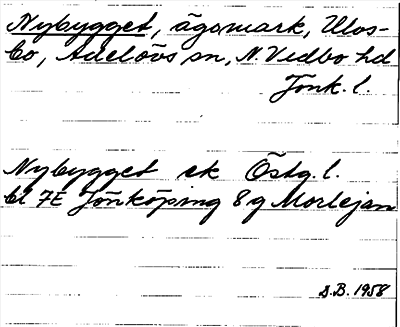 Nybygget, ägomark, Ulos-
bo, Adelövs sn, N. Vedbo hd
Jönk. l.
Nybygget ek Östg. l.
bl 7E Jönköping 8g Morlejan
S.B. 1958